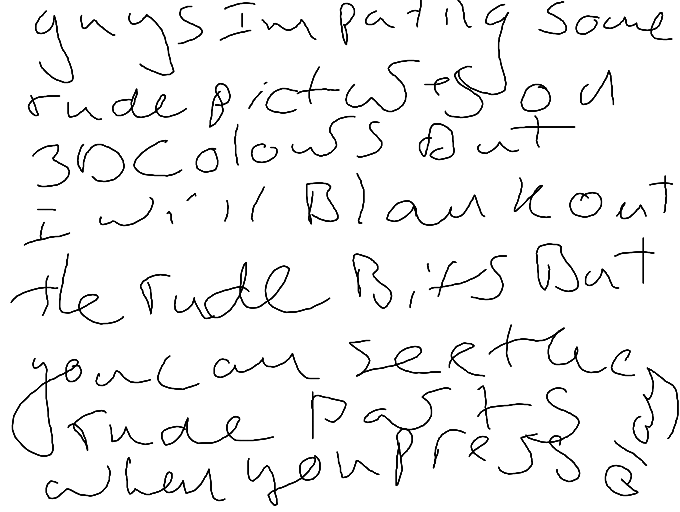 guys Im pating some
rude pictures on
3D Colours But
I will Blank out
the rude Bits But
you can see the
rude parts
when you press play